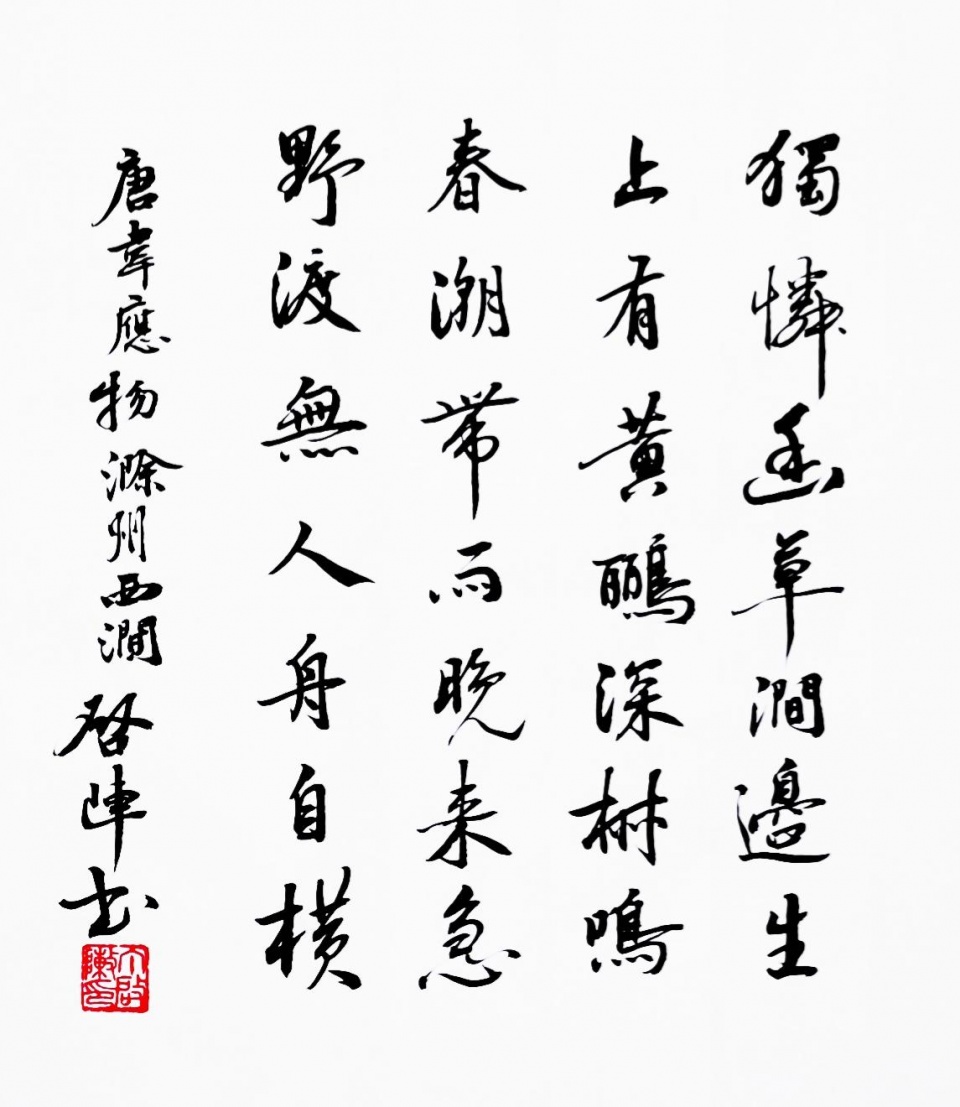 獨憐幽草澗邊生
上有黃鸝深樹鳴
春潮帶雨晚来急
野渡無人舟自橫
唐韋應物滁州西澗 啓陣书